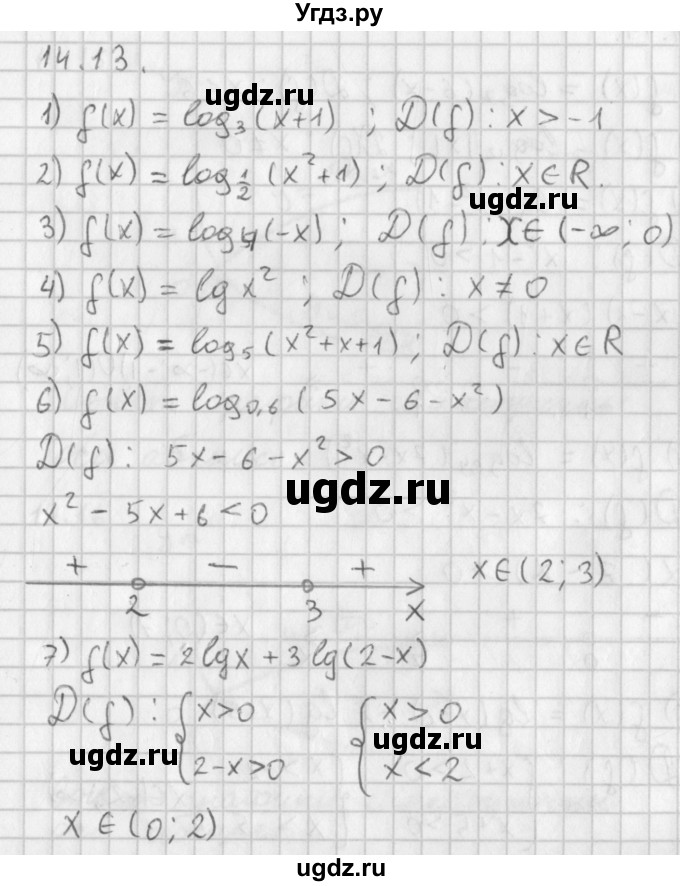 Угдз.ру
14.13.
ugdz.ru
1) f(x) = log₃(x+1) ; D(f) : x > -1
ugdz.ru
2) f(x) = log_{1/2} (x²+1) ; D(f) : x ∈ R.
ugdz.ru
3) f(x) = log₄(-x) ; D(f) : x ∈ (-∞; 0)
4) f(x) = lg x² ; D(f) : x ≠ 0
5) f(x) = log₅(x²+x+1) ; D(f) : x ∈ R
6) f(x) = log_{0,6} (5x - 6 - x²)
D(f) : 5x - 6 - x² > 0
ugdz.ru
x² - 5x + 6 < 0
+ − + x ∈ (2; 3)
2 3 x
7) f(x) = 2 lg x + 3 lg(2-x)
D(f) : { x > 0 { x > 0
ugdz.ru ugdz.ru
2-x > 0 x < 2
x ∈ (0; 2)
ugdz.ru